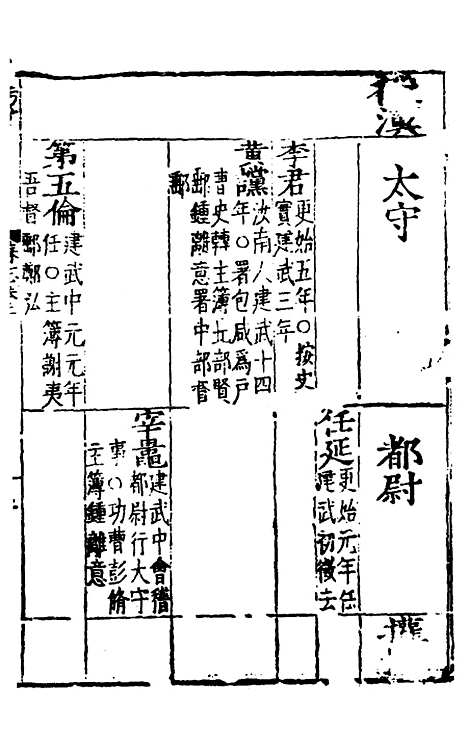 後漢
太守
都尉
掾
李君更始五年○按史
實建武三年
任延更始元年任
建武初徵去
黃讜汝南人建武十四
年○署包咸為戶
曹史韓主簿北部賢
郵鍾離意署中部督
郵
宰鼂建武中會稽
都尉行太守
事○功曹彭脩
主簿鍾離意
第五倫建武中元元年
任○主簿謝夷
吾督郵鄭弘